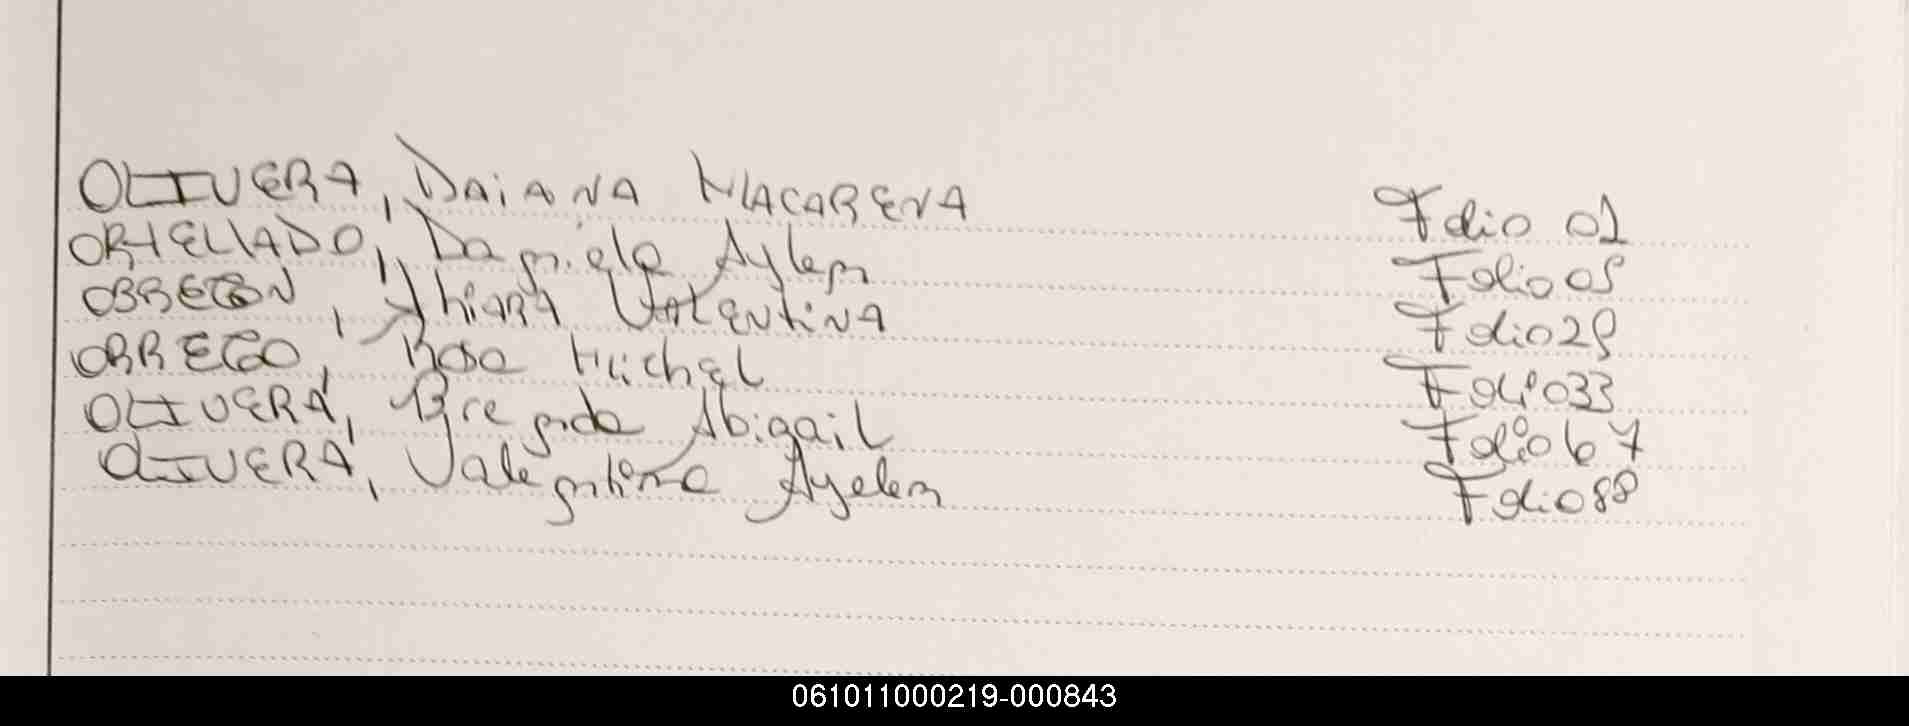 OLIVERA, DAiANA MACARENA Folio 01
ORTELLADO, Daniela Aylen Folio 05
OBREGON, Thiara VALENtiNA Folio 29
ORREGO, Rosa Michel Folio 33
OLIVERA, Brenda Abigail Folio 67
OLIVERA, Valentina Ayelen Folio 88
061011000219-000843